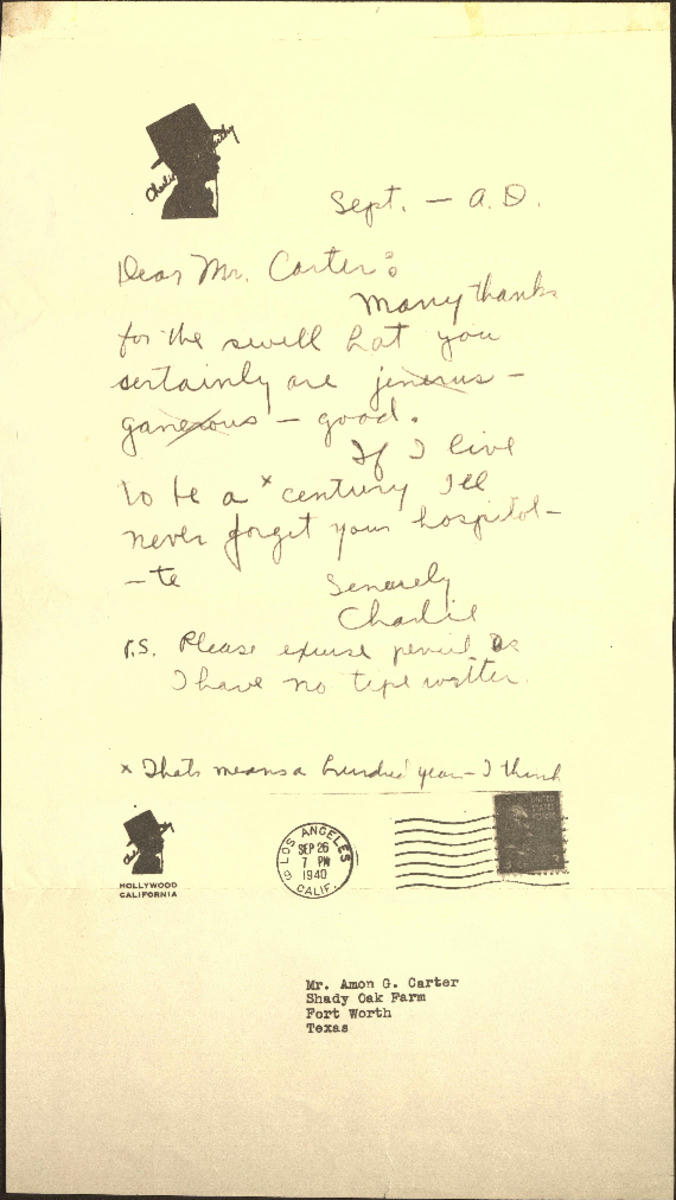 Charlie McCarthy
Sept. — A.D.
Dear Mr. Carter:
Many thanks
for the swell hat you
sertainly are jenerus –
ganerous – good.
If I live
to be a x century I'll
never forget your hospitol–
– te
Senserely
Charlie
P.S. Please excuse pencil as
I have no tipe writter.
x Thats means a hundred year – I think
HOLLYWOOD
CALIFORNIA
LOS ANGELES
SEP 26
7 PM
1940
CALIF.
UNITED
STATES
Mr. Amon G. Carter
Shady Oak Farm
Fort Worth
Texas